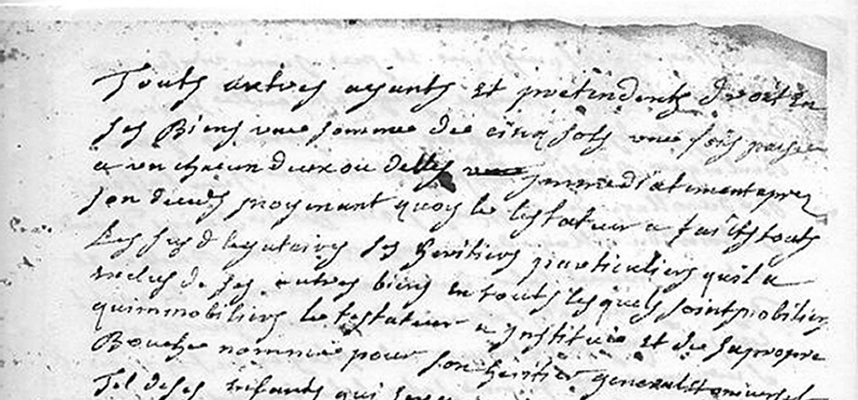 Touts autres ayants et prétendents droit en
ses Biens une somme de cinq sols une fois payee
a un chacun deux ou delles immediatement apres
son deces moyenant quoy le testateur a faits touts
les susd legataires ses heritiers particuliers quil a
exclus de ses autres biens en touts lesquels soint mobiliers
quimmobiliers le testateur a institue et de sa propre
Bouche nommée pour son heritier general et universel
tel de ses enfants qui